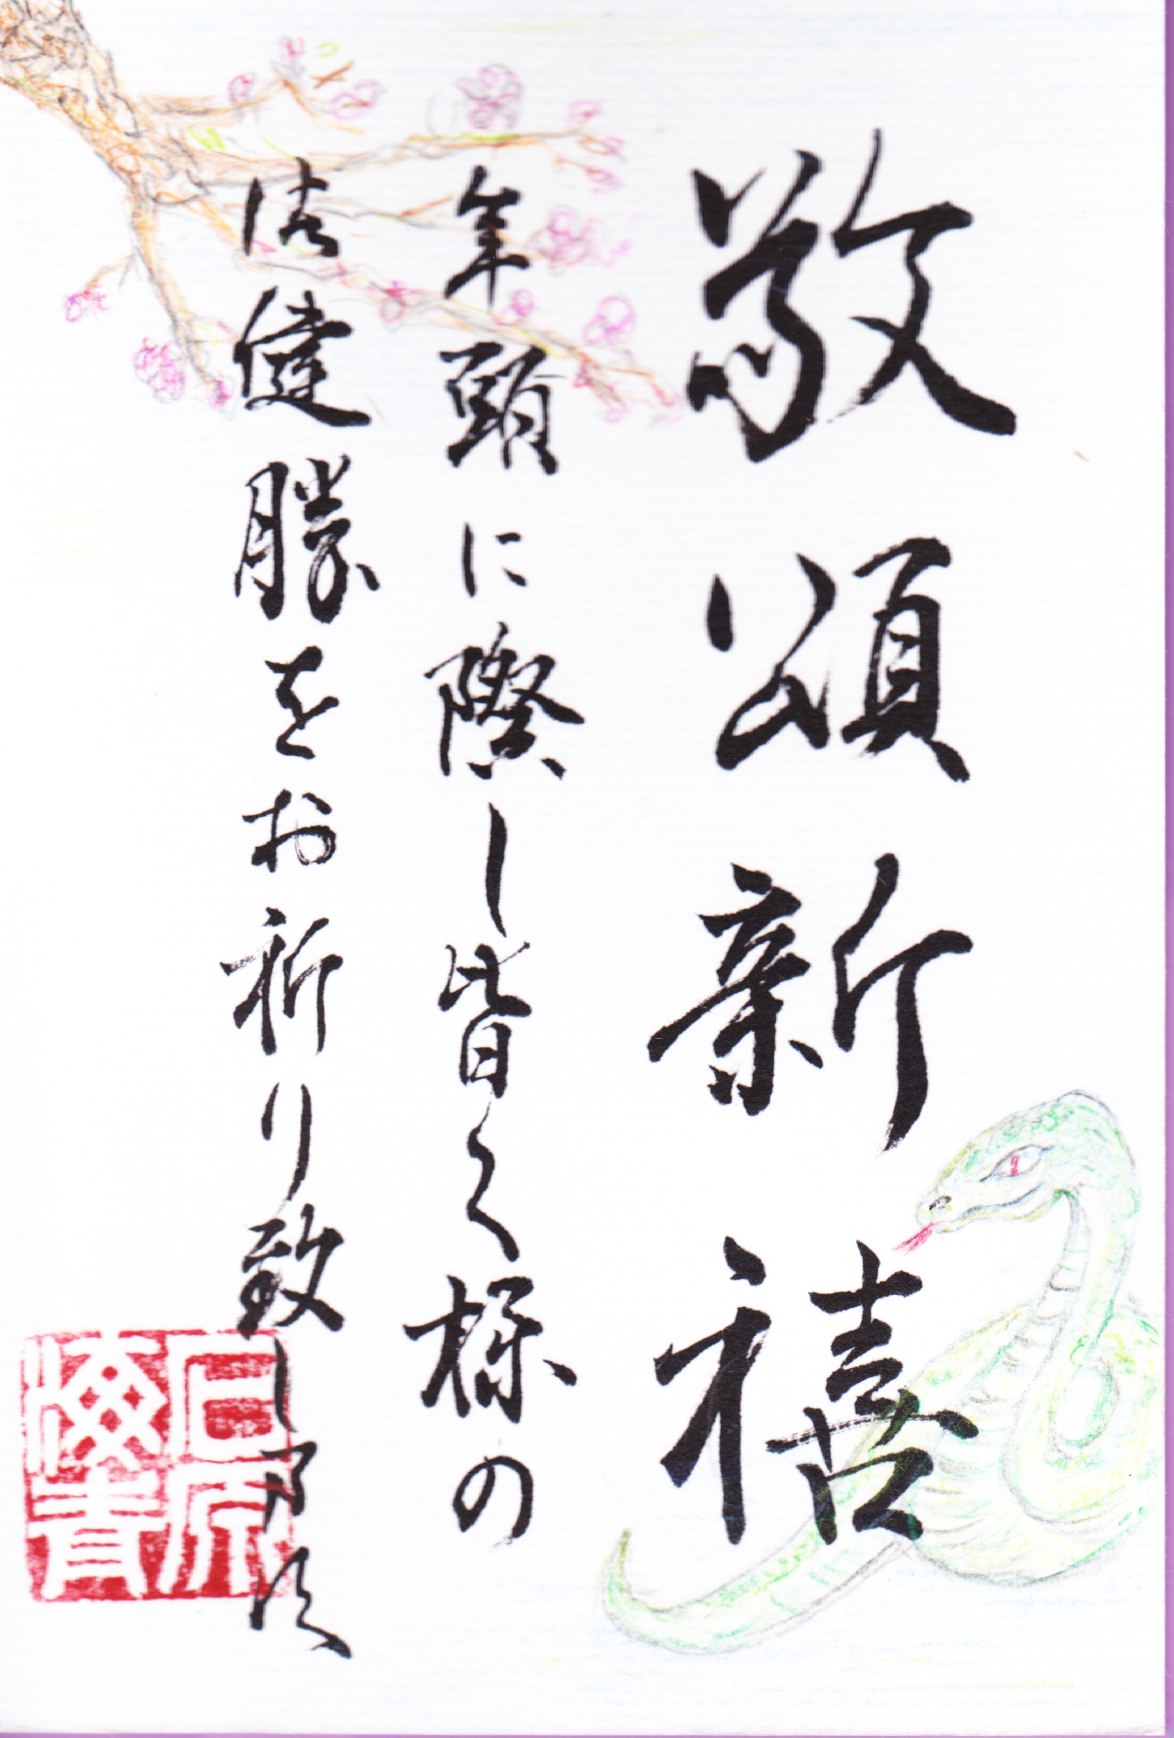 敬頌新禧
年頭に際し皆々様の
御健勝をお祈り致し
石原
青